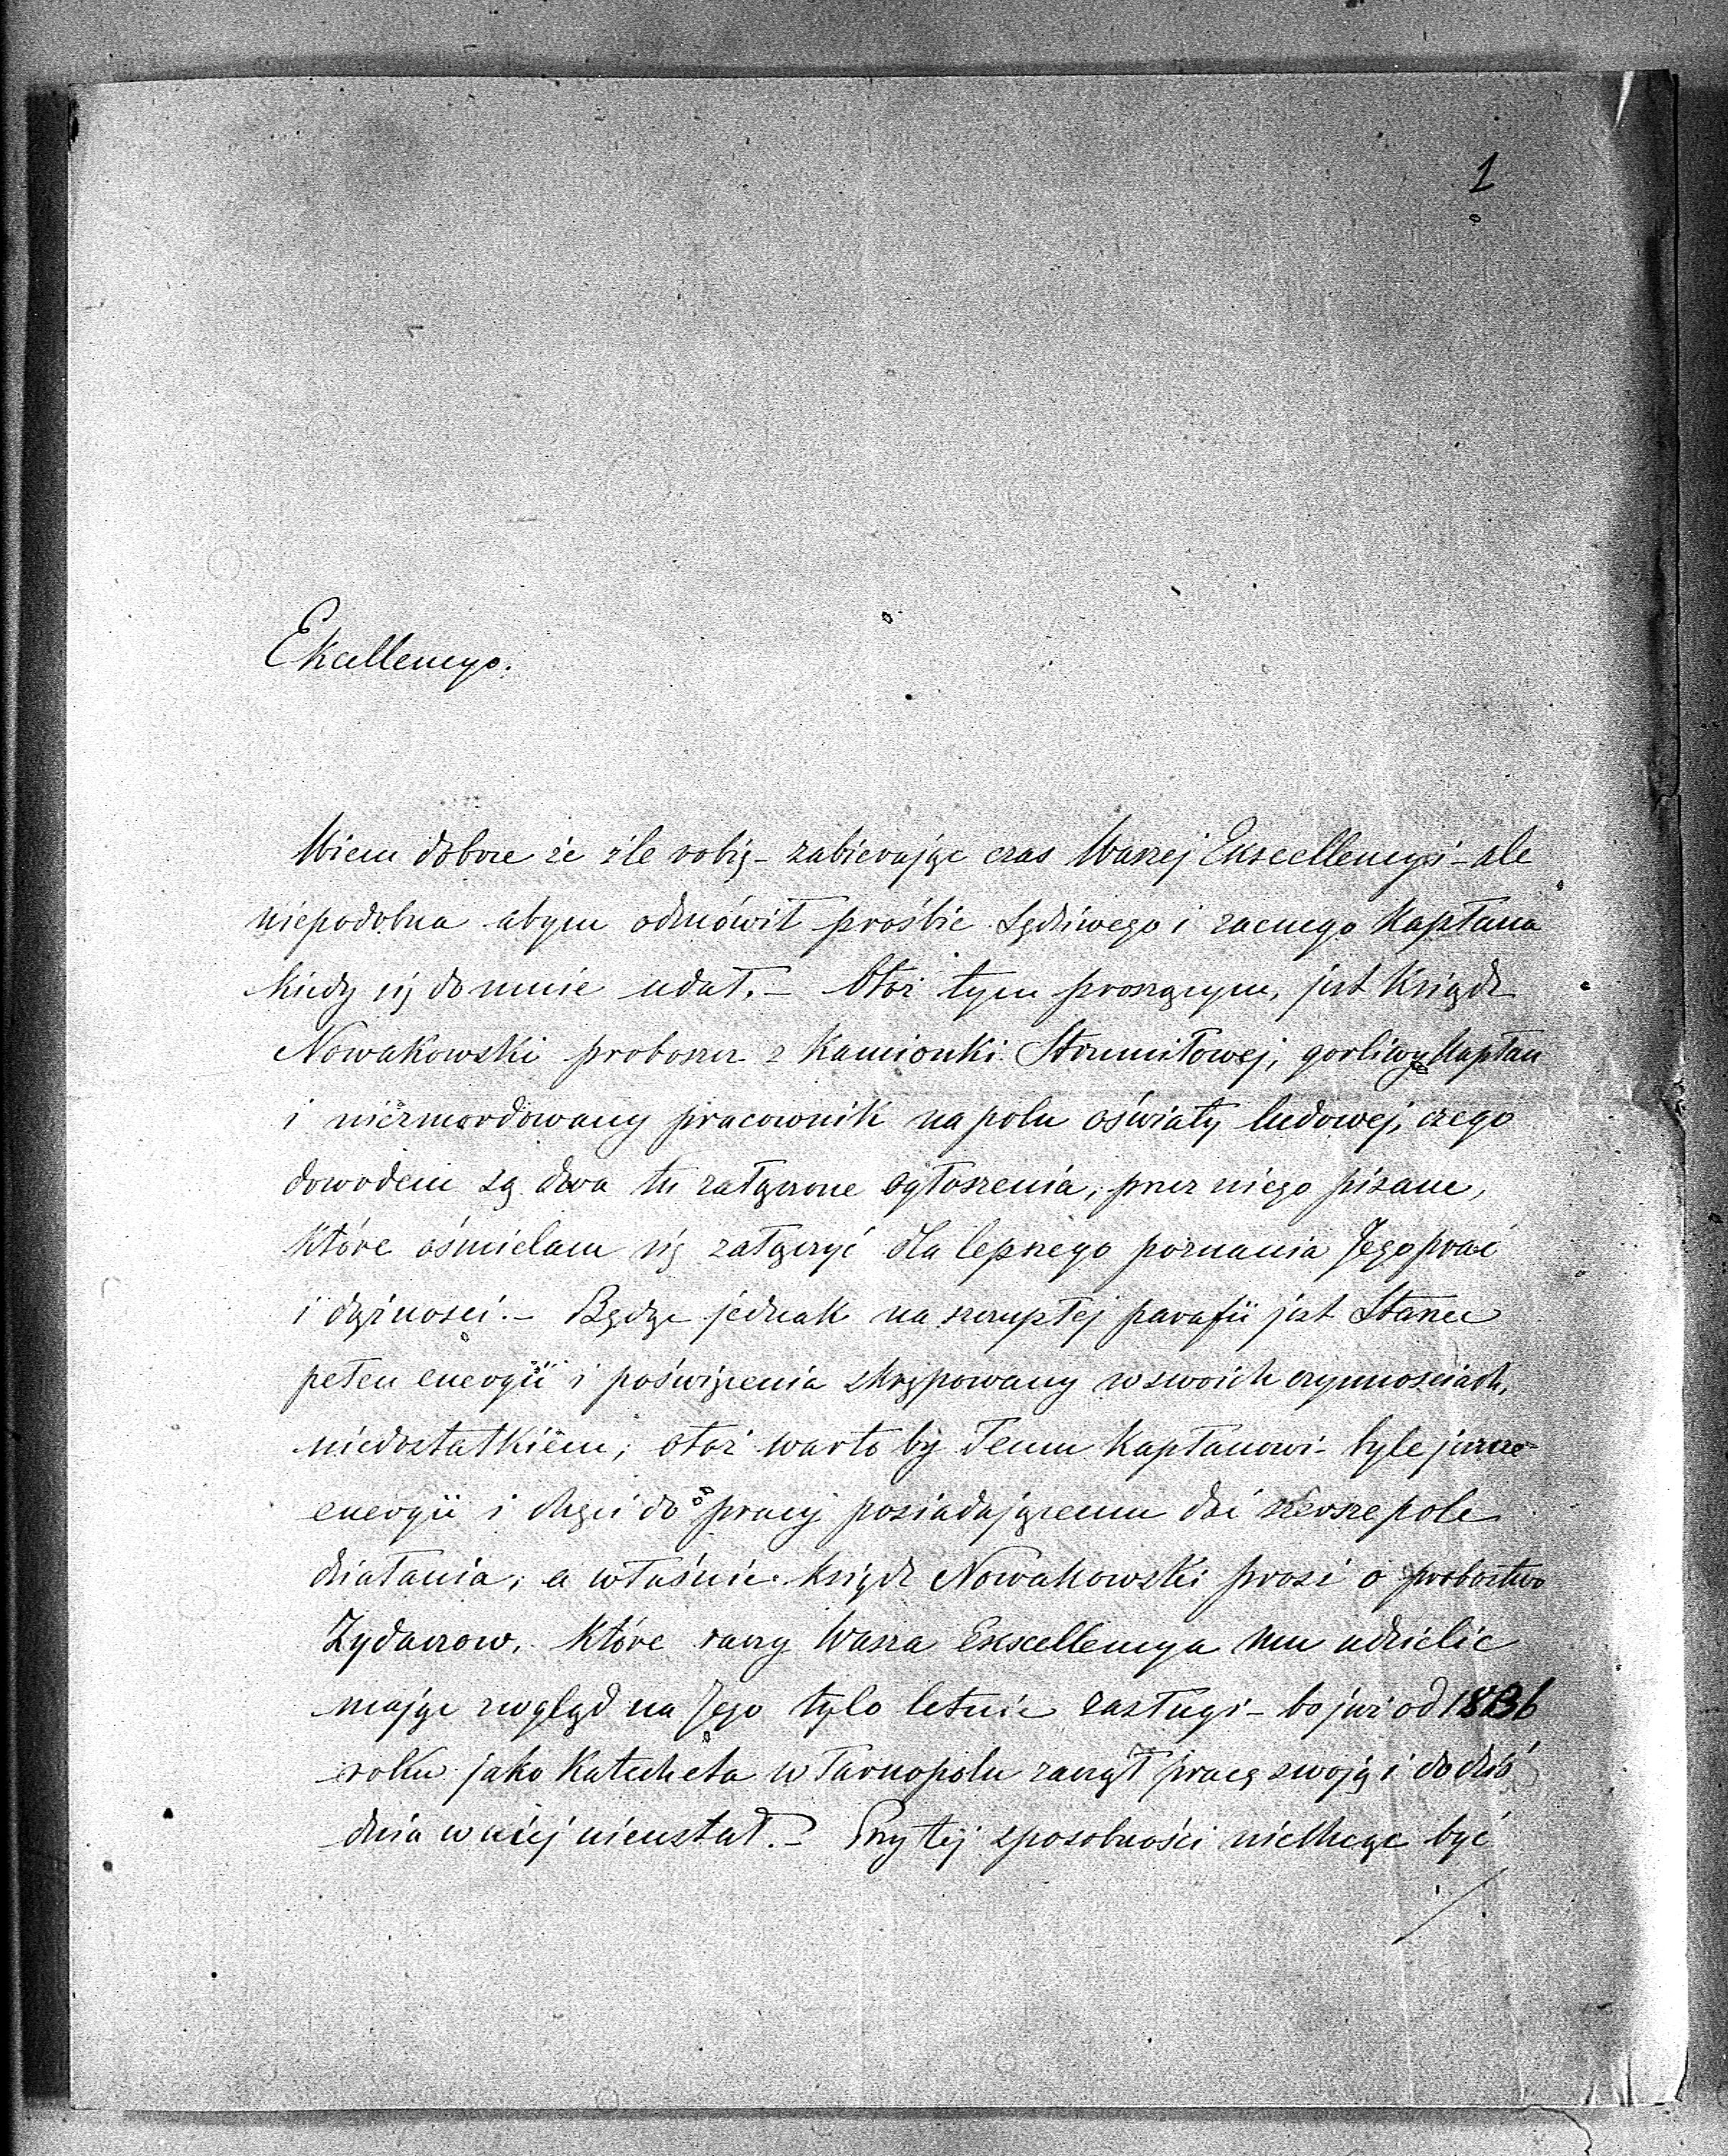 1
Ekcellencyo.
Wiem dobrze że źle robię - zabierając czas Waszej Ekscellencyi - ale
niepodobna abym odmówił prośbie Sędziwego i zacnego Kapłana
kiedy się do mnie udał. - Otóż tym proszącym, jest Ksiądz
Nowakowski proboszcz z Kamionki Strumiłowej, gorliwy Kapłan
i niezmordowany pracownik na polu oświaty ludowej, czego
dowodem są dwa tu załączone ogłoszenia, przez niego pisane,
które ośmielam się załączyć dla lepszego poznania Jego prac
i dążnosci. - Będąc jednak na szczupłej parafii jest Starzec
pełen energii i poświęcenia skrępowany w swoich czynnosciach,
niedostatkiem, otoż warto by Temu Kapłanowi - tyle jeszcze
energii i chęci do pracy posiadającemu dać szersze pole
działania, a właśnie Ksiądz Nowakowski prosi o probostwo
Zydaczow, które raczy Wasza Ekscellencya mu udzielic
mając wzgląd na Jego tylo letnie zasługi - bo już od 1836
roku jako Katecheta w Tarnopolu zaczął pracę swoją i do dziś
dnia w niej nieustał. - Przy tej sposobności niechcąc być